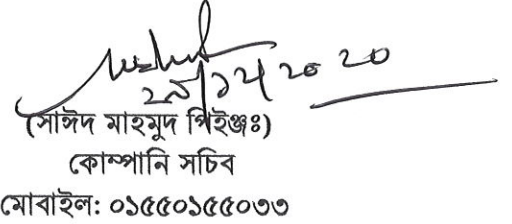 (সাঈদ মাহমুদ পিইঞ্জঃ)
কোম্পানি সচিব
মোবাইল: ০১৫৫০১৫৫০৩৩